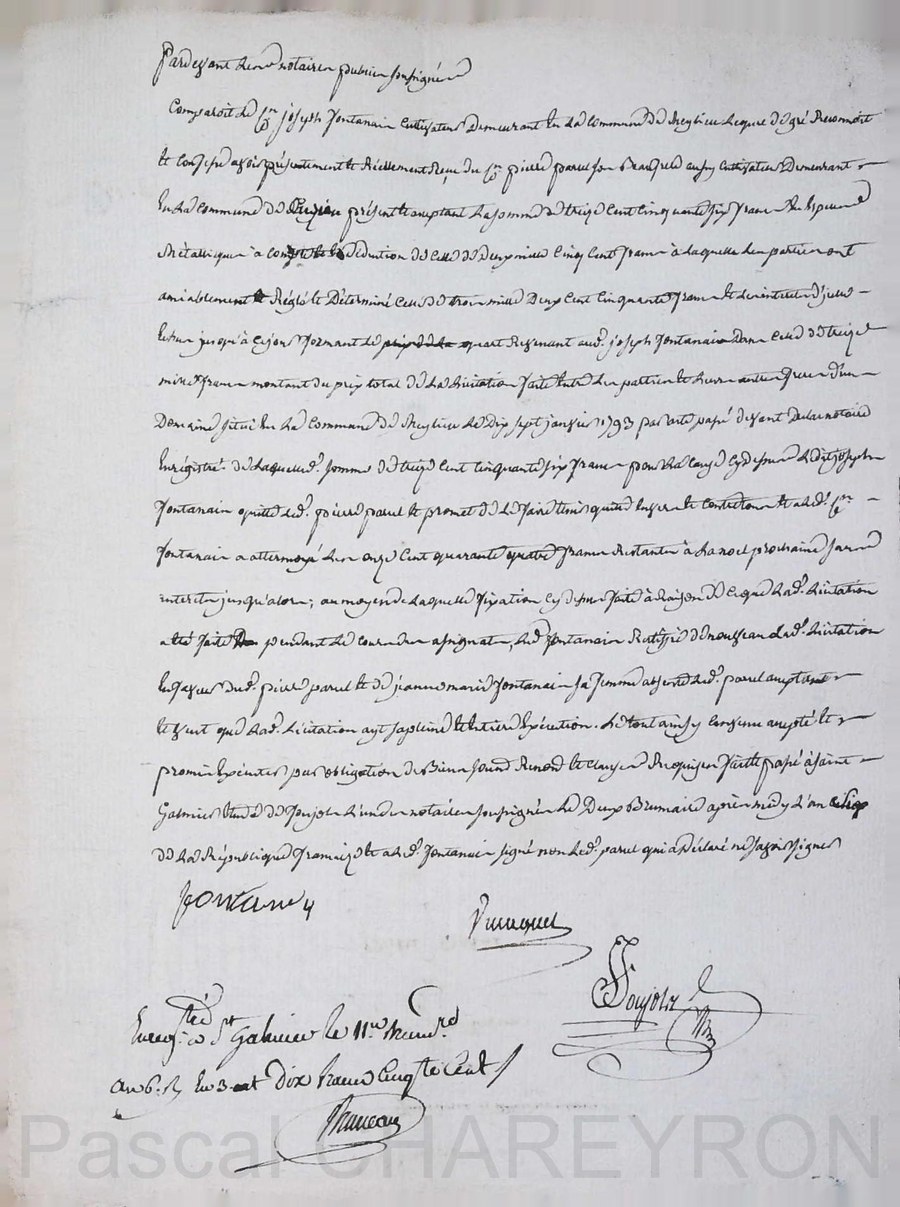 Pardevant Les notaires publics soussignés
Comparoit Le Cen joseph fontanain Cultivateur Demeurant En La Commune De Meylieu Lequel De gré Reconnoit
Et Confesse avoir présentement Et Réellement Reçu du Cen pierre parel son Beaufrere aussy Cultivateur Demeurant
En La Commune De présent Et acceptant La somme De treize Cent Cinquante six francs En Espece
Métallique à Et Déduction De Celle De Deux mille Cinq Cent francs à Laquelle Les parties ont
amiablement Réglé Et Déterminé Celle De trois mille Deux Cent Cinquante francs Et Les interets d'icelle
jusqu'à Ce jour formant Le quart Revenant aud. joseph fontanain dans Celle De treize
mille francs montant du prix total De La Licitation faite Entre Les parties Et Leurs autres freres D'un
Domaine situé En La Commune De Meylieu Le Dix sept janvier 1793 par acte passé devant notaire
Enregistré De Laquelle d. somme De treize Cent Cinquante six francs pour La Cause Cy dessus Ledit joseph
fontanain quitte Led. pierre parel Et promet De Le faire tenir quitte Envers Et Contre tous Et a Led. Cen
fontanain attermoyé Les onze Cent quarante quatre francs Restants à La noel prochaine sans
interets jusqu'alors; au moyen De Laquelle fixation Cy dessus faite à Raison De Ce que Lad. Licitation
a été faite pendant Le Cours Des assignats, Led. fontanain Ratiffie De nouveau Lad. Licitation
En faveur Dud. pierre parel Et De jeanne marie fontanain sa femme Led. parel acceptant
Et veut que Lad. Licitation ayt sa pleine Et Entiere Exécution. Le tout ainsy Convenu accepté Et
promis Exécuter par obligation De Biens Renoncé Et Clauses Requises fait Et passé à saint
Galmier Etude De Soujol L'un des notaires soussignés Le Deux Brumaire après midy L'an six
De La République française Et a Led. fontanain signé non Led. parel qui a Déclaré ne savoir signer
fontanay
Soujol
Enregtré à St Galmier le 11 Brumre
an 6. Dix francs Cinqte Cent.